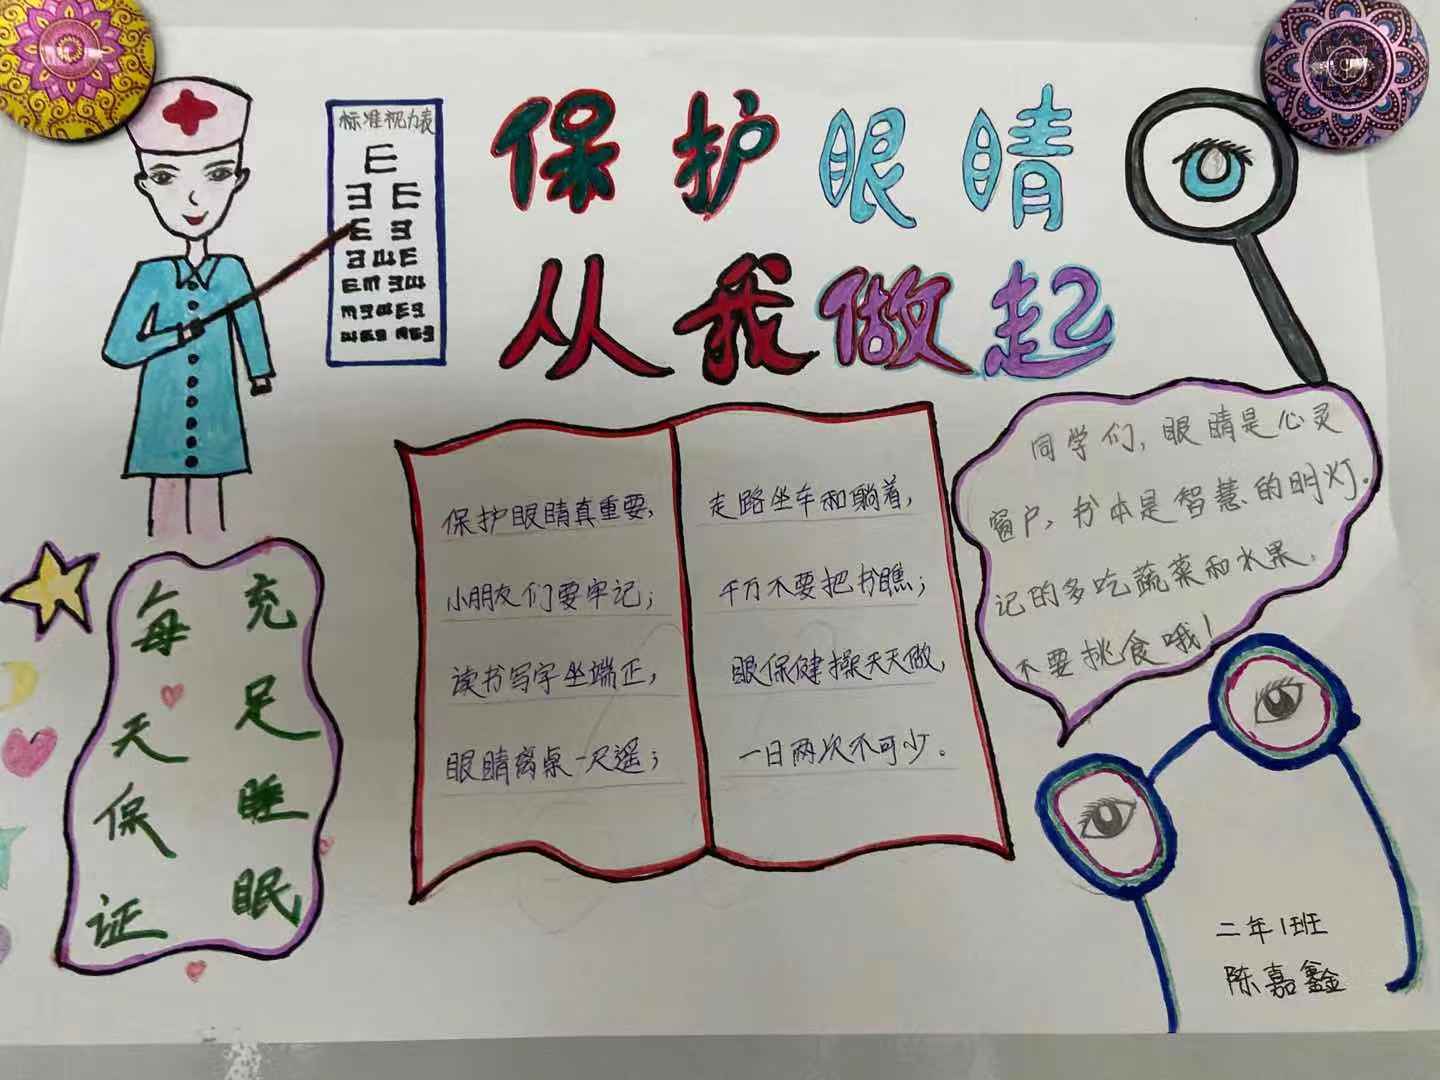 标准视力表
保护眼睛
从我做起
保护眼睛真重要，
小朋友们要牢记；
读书写字坐端正，
眼睛离桌一尺遥；
走路坐车和躺着，
千万不要把书瞧；
眼保健操天天做，
一日两次不可少。
同学们，眼睛是心灵
窗户，书本是智慧的明灯.
记的多吃蔬菜和水果.
不要挑食哦！
每天保证
充足睡眠
二年1班
陈嘉鑫